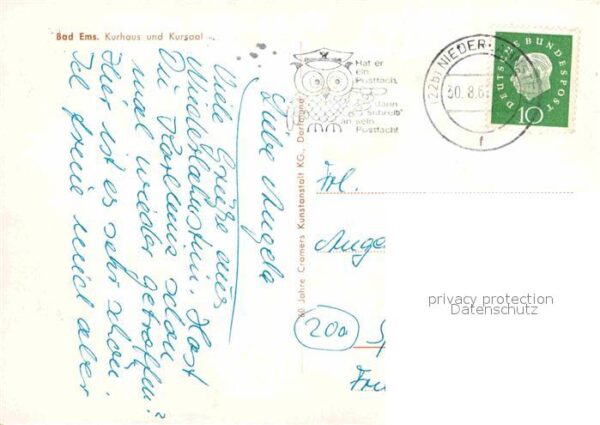 Bad Ems. Kurhaus und Kursaal
Liebe Angela
Viele Grüße aus
Niederlahnstein. Hast
Du Marlanie schon
mal wieder getroffen?
Hier ist es sehr schön.
Ich freue mich aber
60 Jahre Cramers Kunstanstalt KG., Dortmund
Hat er
ein
Postfach,
dann
"Schreib"
an sein
Postfach!
(22b) NIEDER
30.8.6
f
DEUTSCHE BUNDESPOST
10
Frl.
Ange
20a
privacy protection
Datenschutz